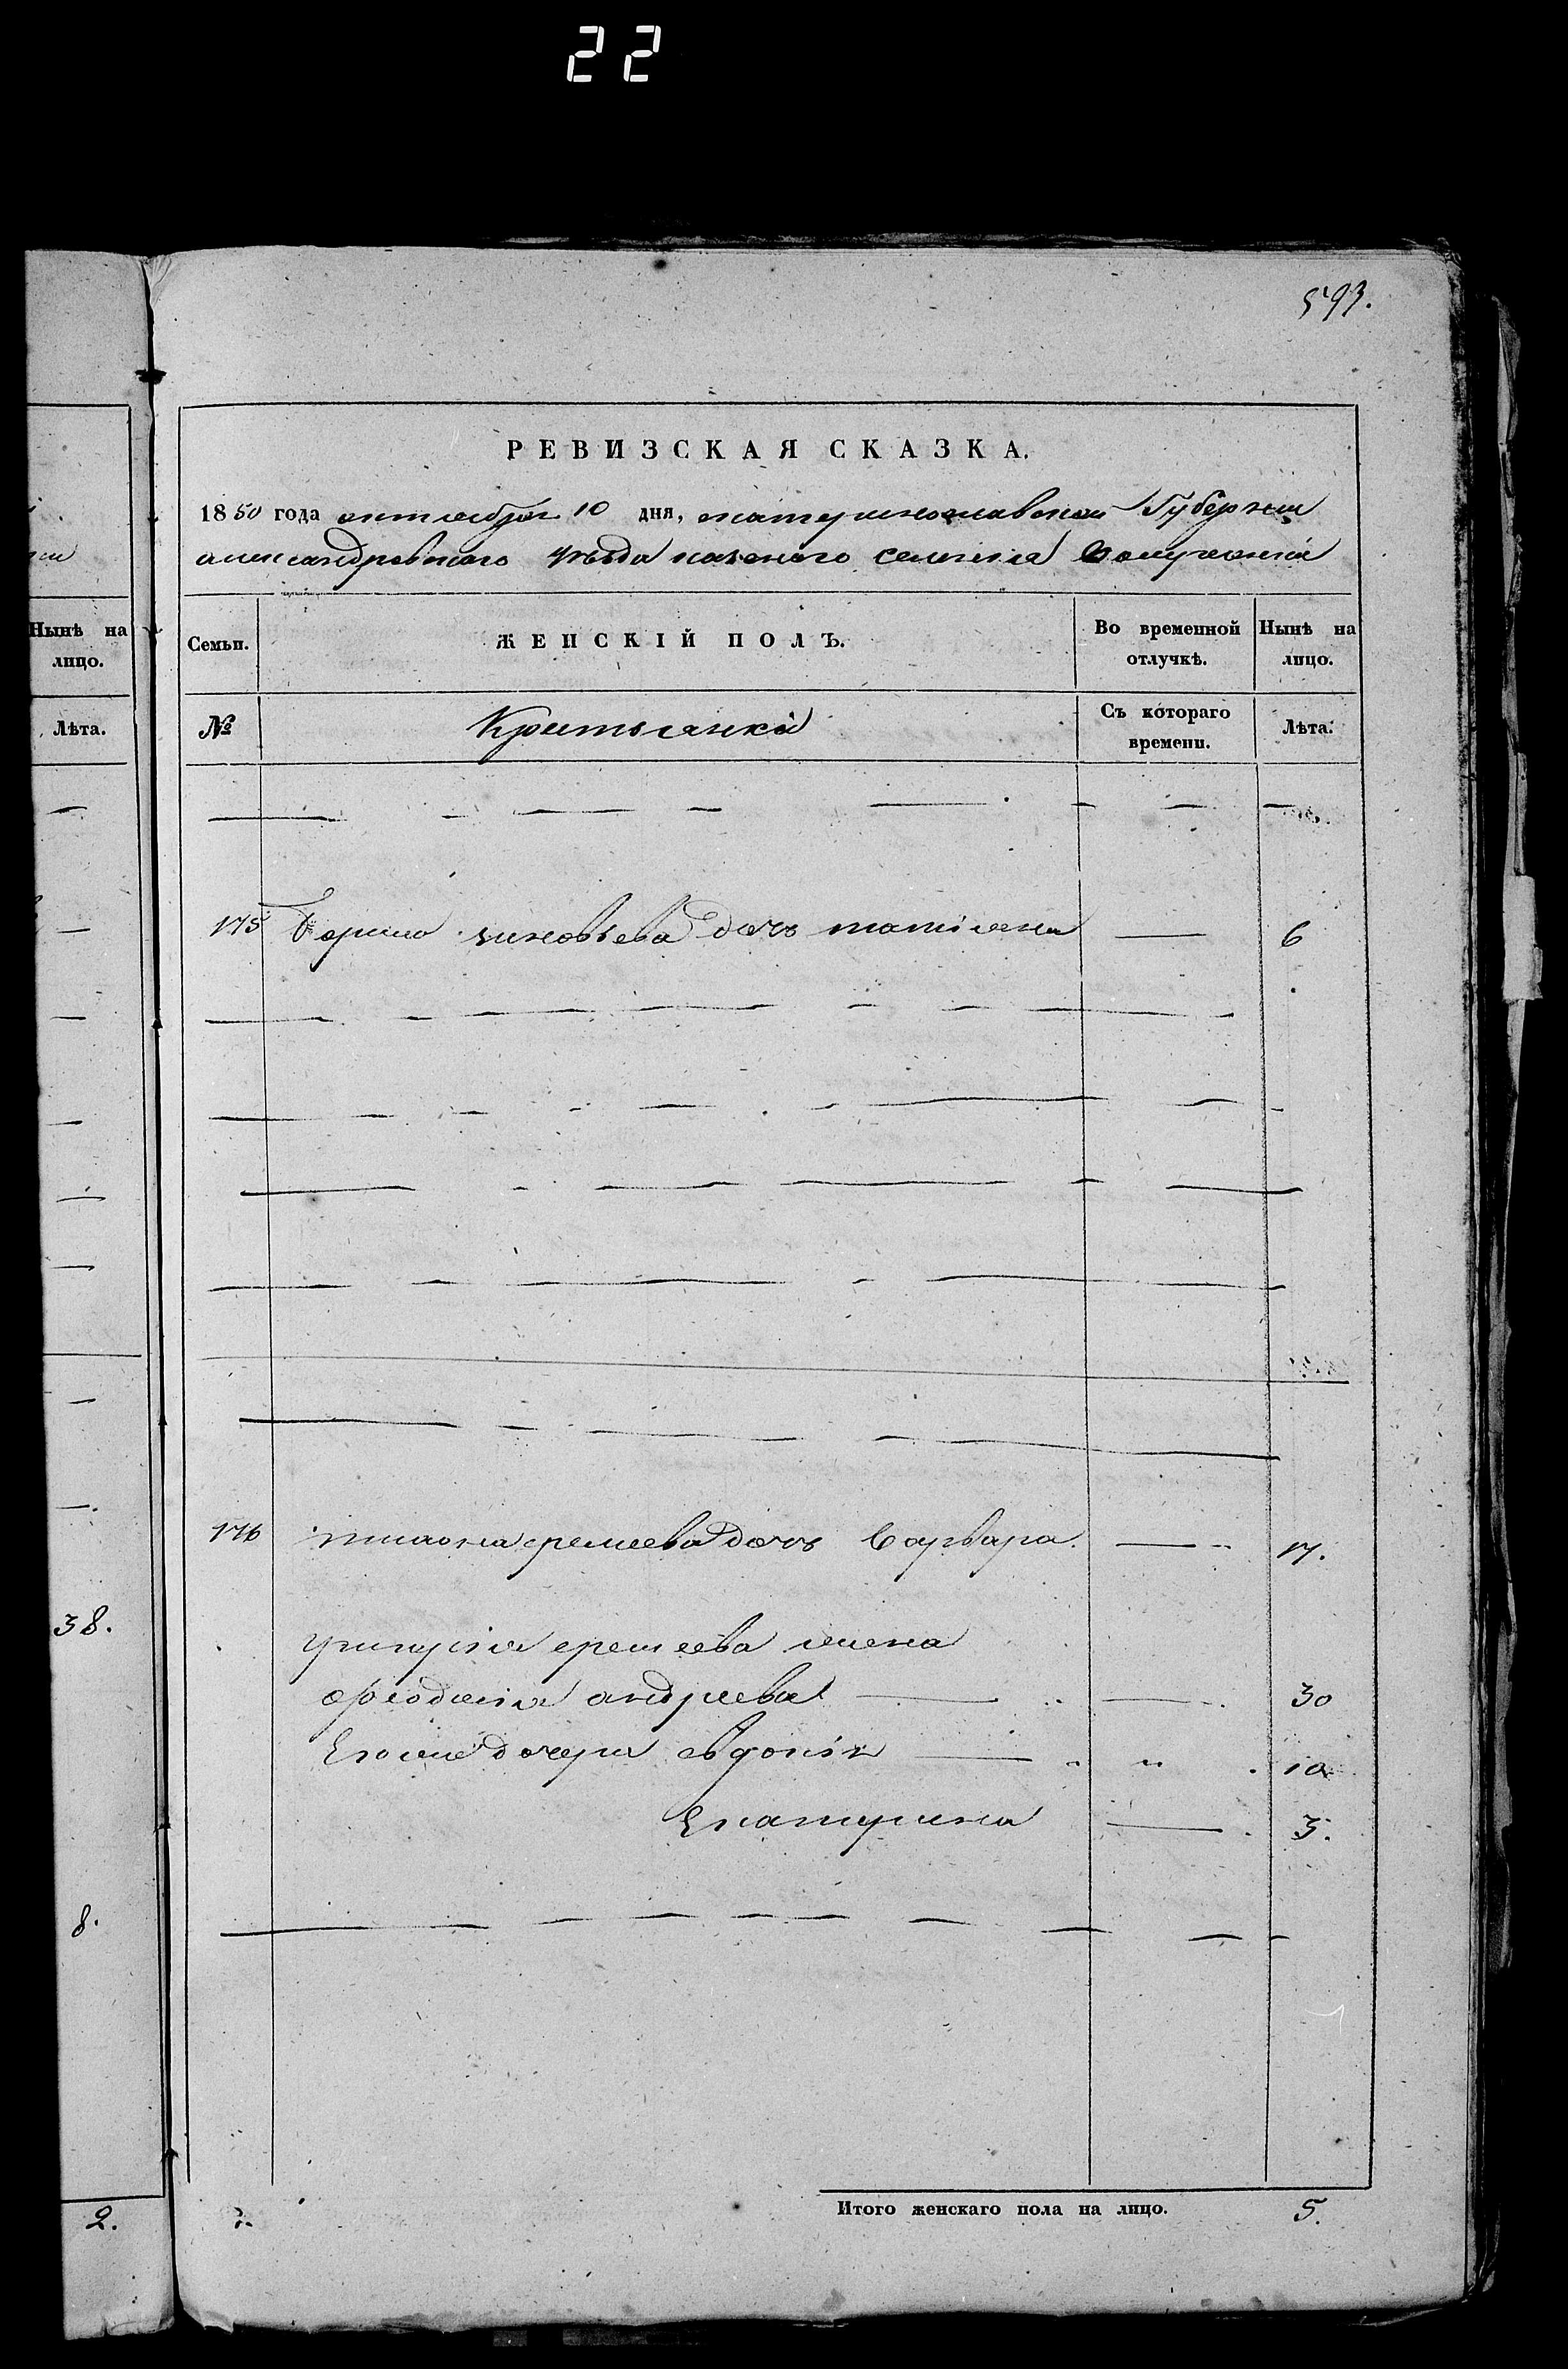 22
593.
РЕВИЗСКАЯ СКАЗКА.
1850 года октября 10 дня, екатеринославской Губернии
александровского уѣзда казенного селения
Семьи.
ЖЕНСКІЙ ПОЛЪ.
Во временной отлучкѣ.
Нынѣ на лицо.
№
Крестьянка
Съ котораго времени.
Лѣта.
175 зиновьева дочь татіана — 6
176 еремеева дочь варвара — 17.
еремеева жена
феодосія андреева — 30
Его же дочери евдокія — 10
Екатерина — 3.
Итого женскаго пола на лицо. 5.
Нынѣ на
лицо.
Лѣта.
38.
8.
2.